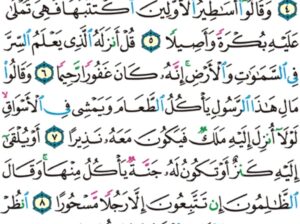 ٤ وَقَالُوٓا۟ أَسَٰطِيرُ ٱلْأَوَّلِينَ ٱكْتَتَبَهَا فَهِىَ تُمْلَىٰ
عَلَيْهِ بُكْرَةً وَأَصِيلًا ٥ قُلْ أَنزَلَهُ ٱلَّذِى يَعْلَمُ ٱلسِّرَّ
فِى ٱلسَّمَٰوَٰتِ وَٱلْأَرْضِ إِنَّهُۥ كَانَ غَفُورًا رَّحِيمًا ٦ وَقَالُوا۟
مَالِ هَٰذَا ٱلرَّسُولِ يَأْكُلُ ٱلطَّعَامَ وَيَمْشِى فِى ٱلْأَسْوَاقِ
لَوْلَآ أُنزِلَ إِلَيْهِ مَلَكٌ فَيَكُونَ مَعَهُۥ نَذِيرًا ٧ أَوْ يُلْقَىٰٓ
إِلَيْهِ كَنزٌ أَوْ تَكُونُ لَهُۥ جَنَّةٌ يَأْكُلُ مِنْهَا وَقَالَ
ٱلظَّٰلِمُونَ إِن تَتَّبِعُونَ إِلَّا رَجُلًا مَّسْحُورًا ٨ ٱنظُرْ